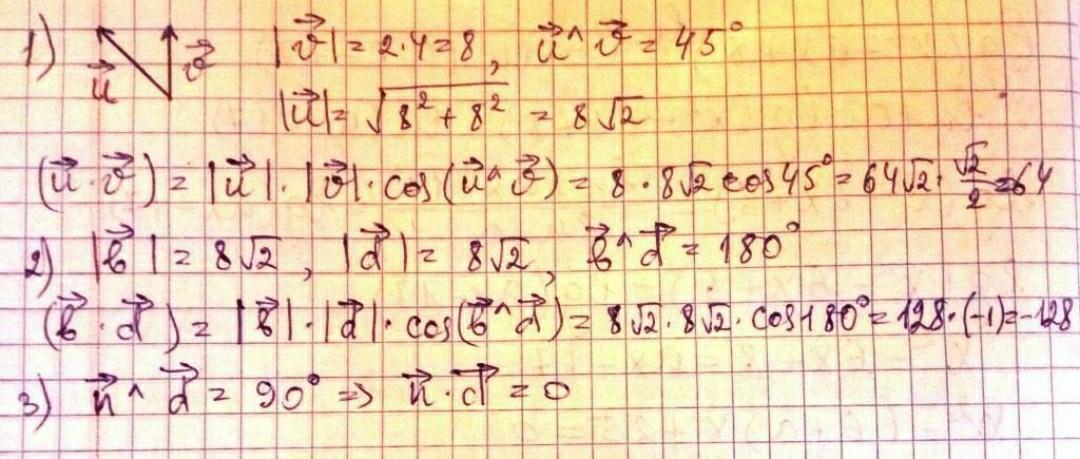 1) u⃗ v⃗ |v⃗| = 2·4 = 8, u⃗^v⃗ = 45°
|u⃗| = √(8² + 8²) = 8√2
(u⃗·v⃗) = |u⃗|·|v⃗|·cos(u⃗^v⃗) = 8·8√2 cos45° = 64√2·√2/2 = 64
2) |b⃗| = 8√2, |d⃗| = 8√2, b⃗^d⃗ = 180°
(b⃗·d⃗) = |b⃗|·|d⃗|·cos(b⃗^d⃗) = 8√2·8√2·cos180° = 128·(-1) = -128
3) n⃗^d⃗ = 90° => n⃗·d⃗ = 0